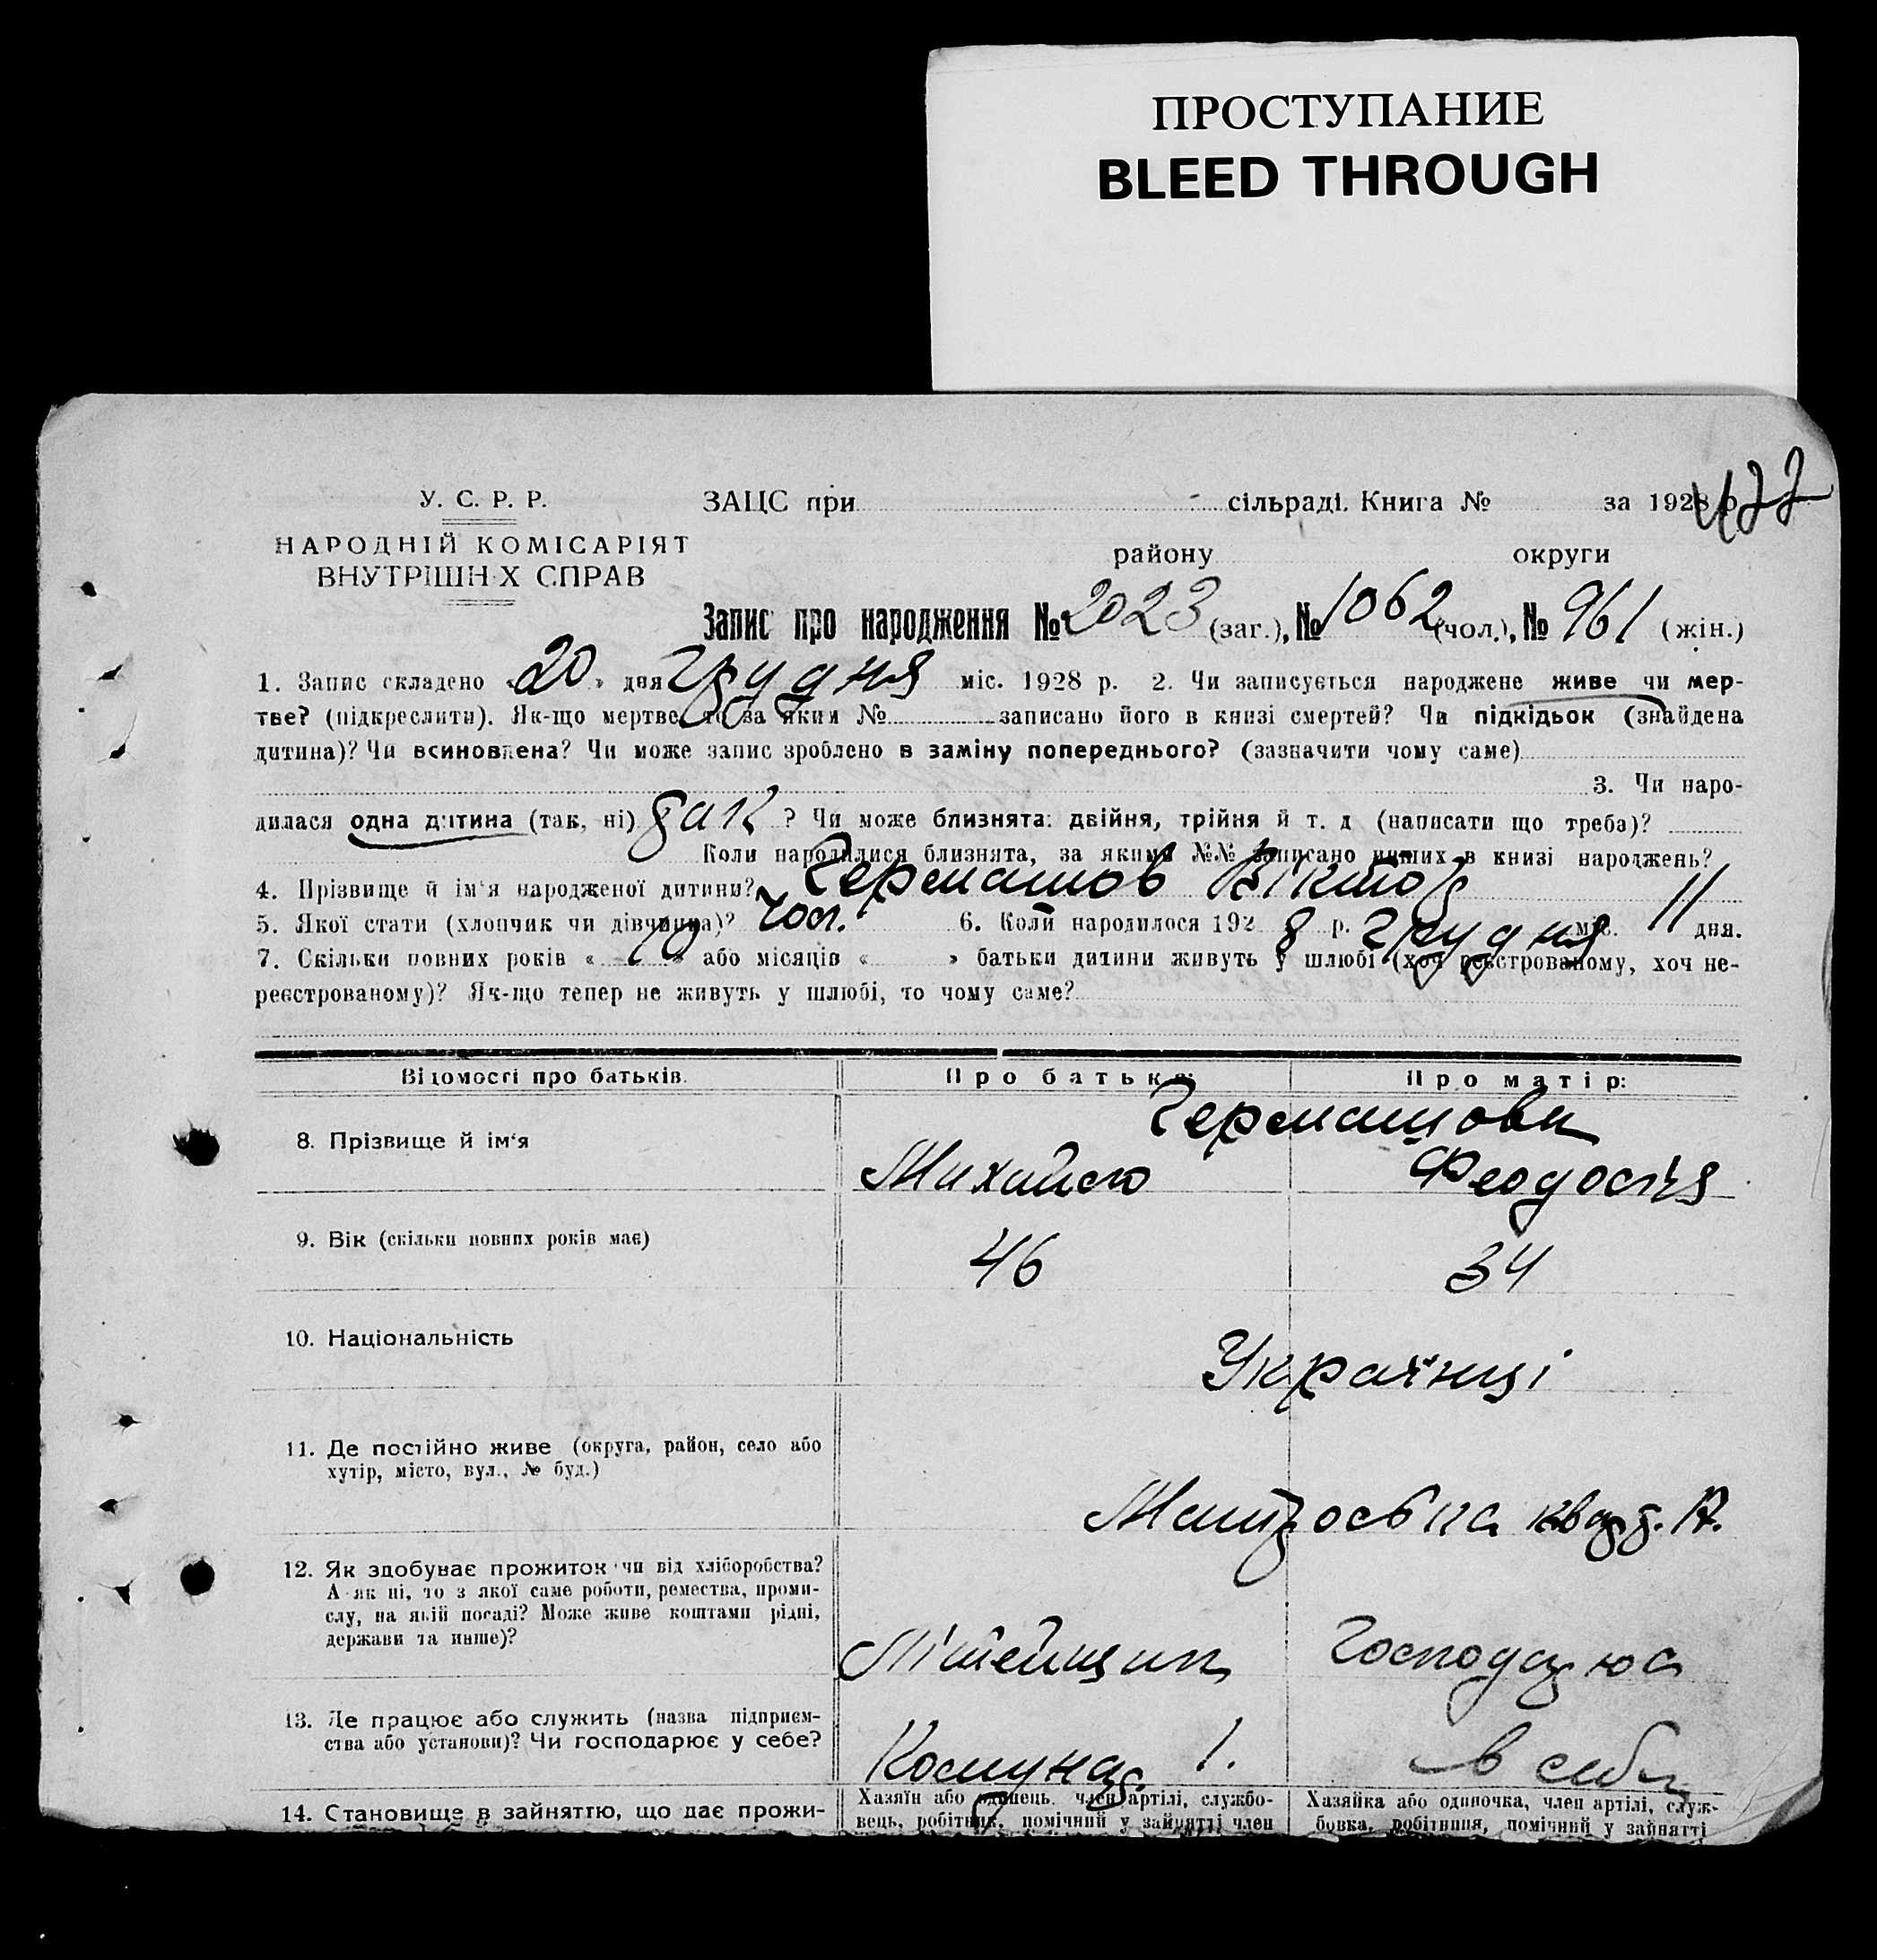 ПРОСТУПАНИЕ
BLEED THROUGH
У. С. Р. Р. ЗАЦС при сільраді. Книга № за 1928 р. 477
НАРОДНІЙ КОМІСАРІЯТ району округи
ВНУТРІШНІХ СПРАВ
Запис про народження № 2023 (заг.), № 1062 (чол.), № 961 (жін.)
1. Запис складено «20» дня Грудня міс. 1928 р. 2. Чи записується народжене живе чи мер-
тве? (підкреслити). Як-що мертве то за яким № записано його в книзі смертей? Чи підкідьок (знайдена
дитина)? Чи всиновлена? Чи може запис зроблено в заміну попереднього? (зазначити чому саме)
3. Чи наро-
дилася одна дитина (так, ні) так ? Чи може близнята: двійня, трійня й т. д (написати що треба)?
Коли народилися близнята, за якими №№ записано инших в книзі народжень?
4. Прізвище й ім'я народженої дитини? Чермашов Віктор
5. Якої стати (хлопчик чи дівчинка)? чол. 6. Коли народилося 192 8 р. грудня міс. 11 дня.
7. Скільки повних років « 10 » або місяців « » батьки дитини живуть у шлюбі (хоч реєстрованому, хоч не-
реєстрованому)? Як-що тепер не живуть у шлюбі, то чому саме?
Відомості про батьків. Про батька: Про матір:
Чермашови
8. Прізвище й ім'я Михайло Феодосія
9. Вік (скільки повних років має) 46 34
10. Національність Українці
11. Де постійно живе (округа, район, село або
хутір, місто, вул., № буд.)
12. Як здобуває прожиток чи від хліборобства?
А як ні, то з якої саме роботи, ремества, проми-
слу, на якій посаді? Може живе коштами рідні,
держави та инше)? Літейщик Господарює
13. Де працює або служить (назва підприєм-
ства або установи)? Чи господарює у себе? Комунар. 1. в себе
14. Становище в зайняттю, що дає прожи- Хазяїн або одинець, член артілі, службо- Хазяйка або одиночка, член артілі, служ-
вець, робітник, помічний у зайнятті член бовка, робітниця, помічний у зайнятті